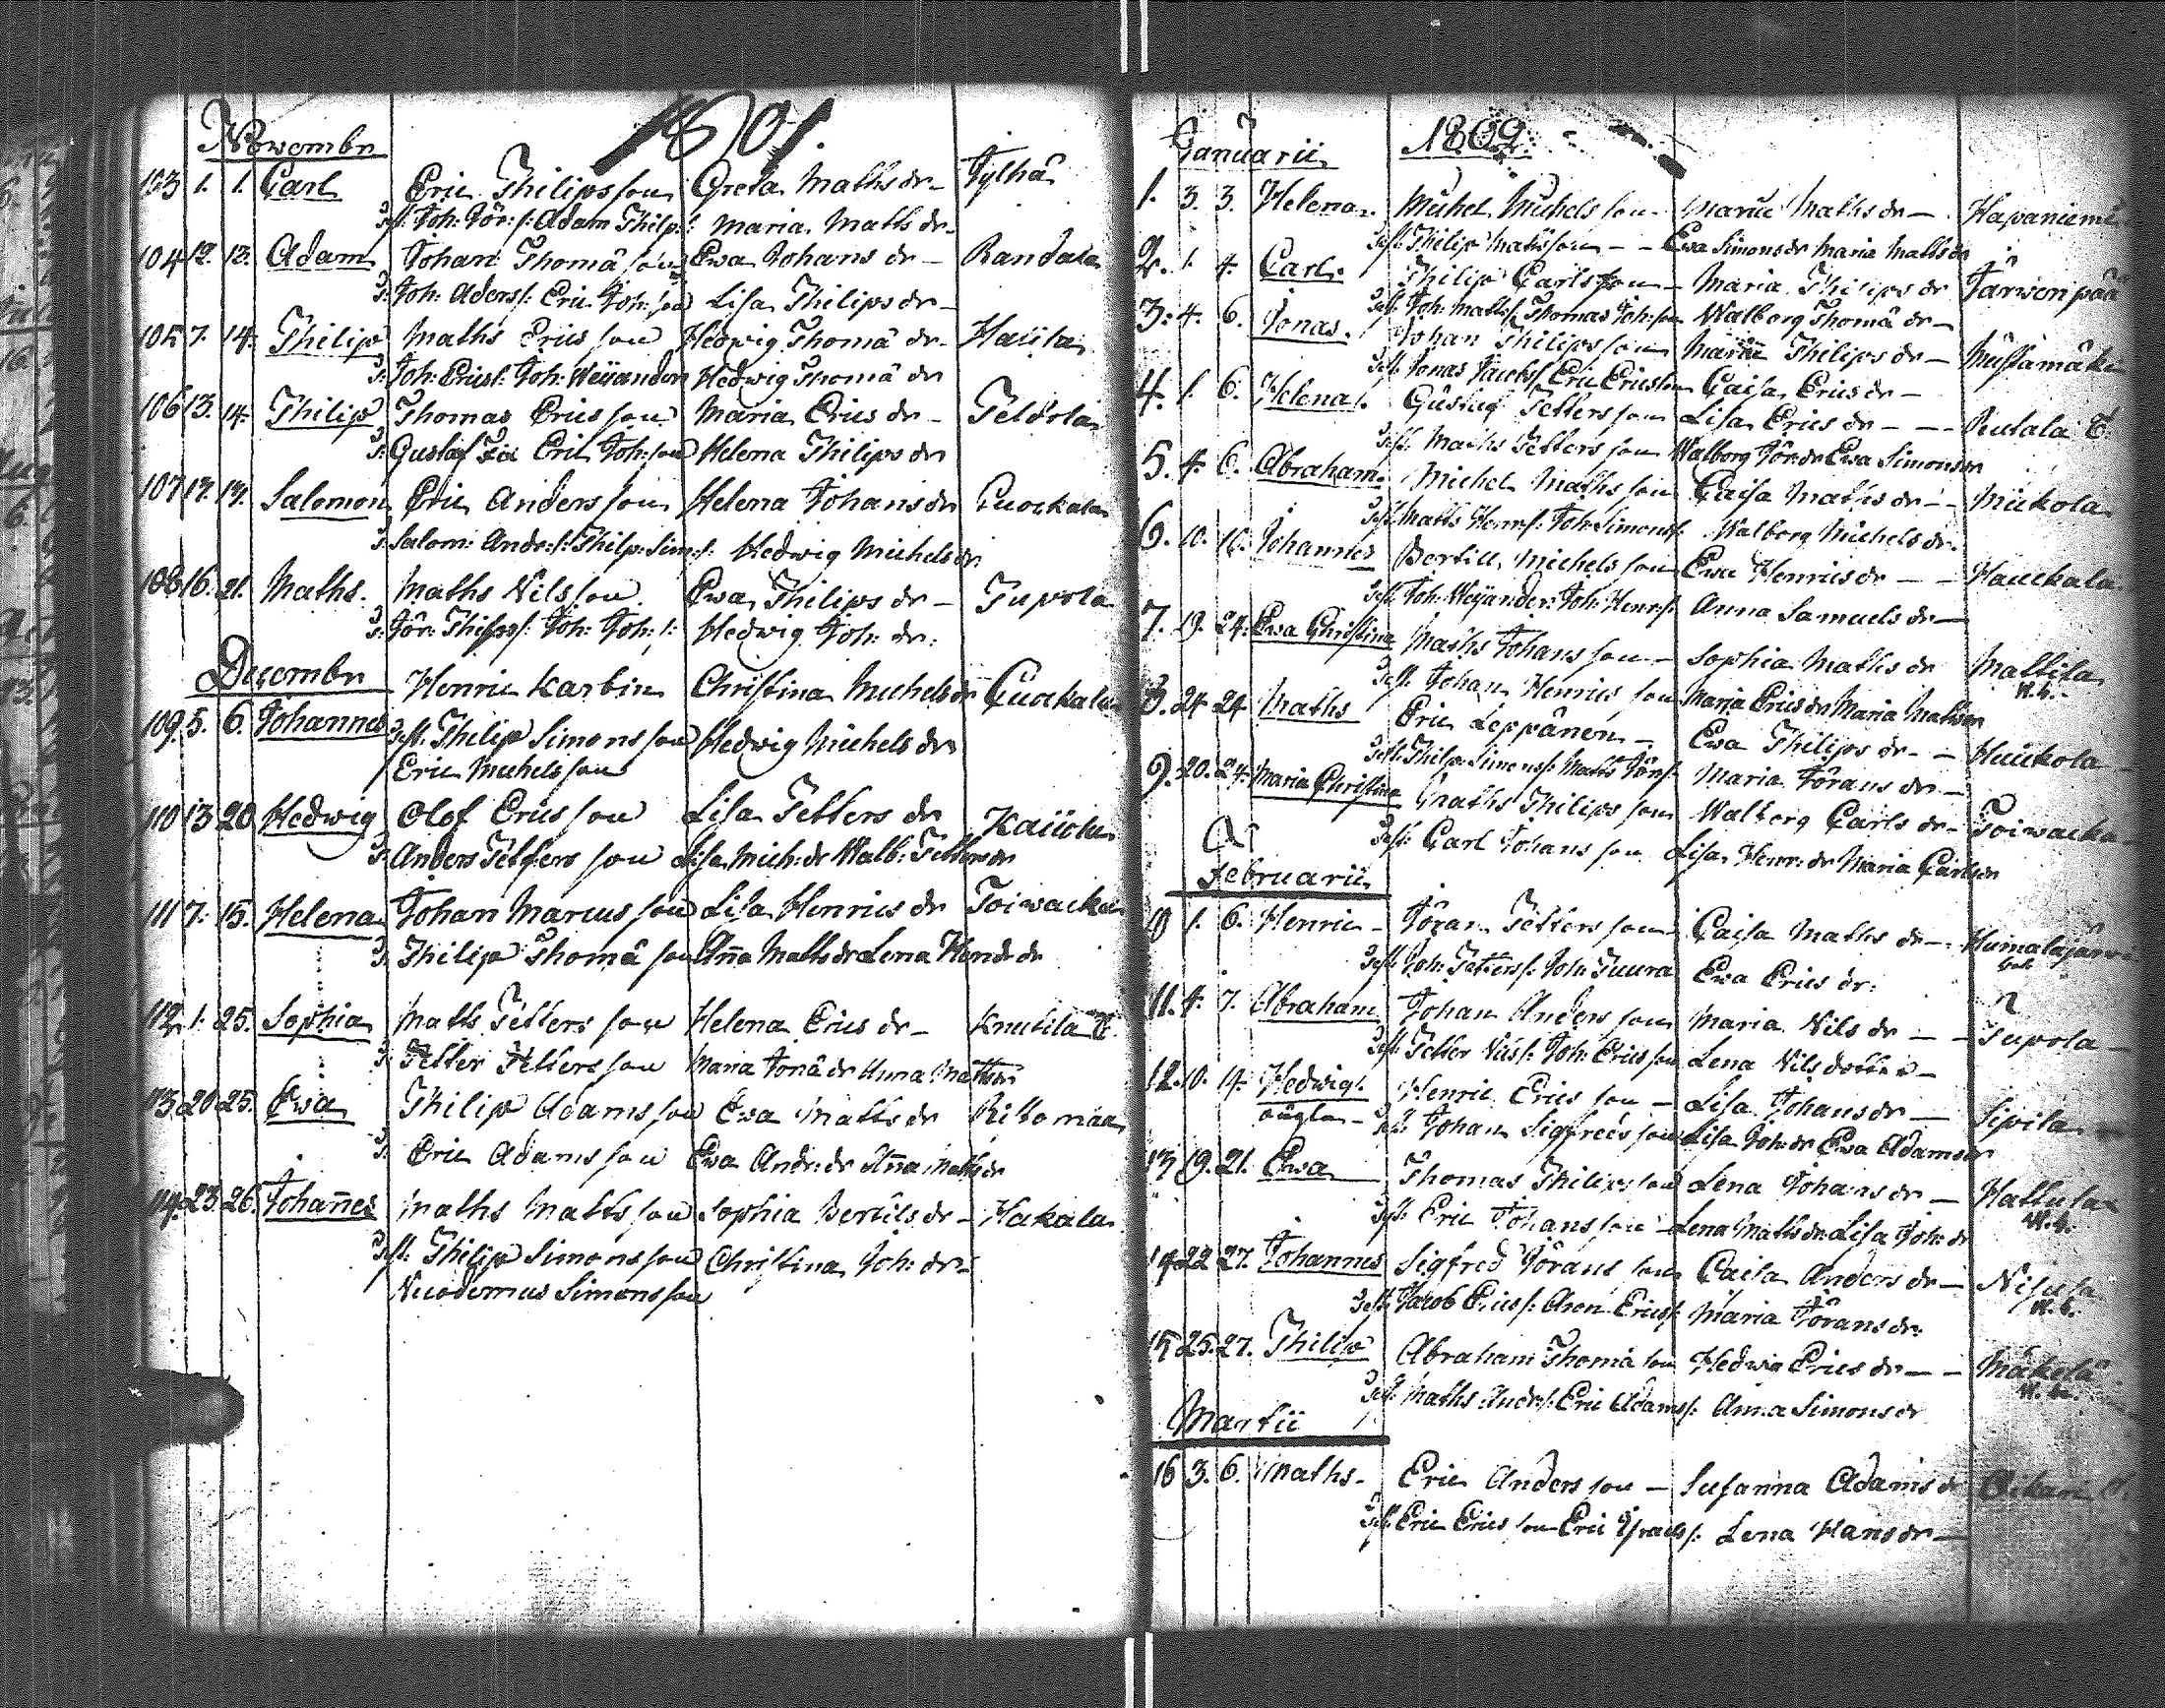 1801.
Novembr
103 1. 1. Carl Eric Philipsson Greta Mathsdr – Pylhä
Test: Joh: Jör: s: Adam Philp: s: Maria Mattsdr –
104 12. 13. Adam Johan Thomä son Ewa Johans dr – Randala
T: Joh: Aders s: Eric Joh: son Lisa Philips dr –
105 7. 14. Philip Maths Erics son Hedwig Thomä dr –
T: Joh: Erics s: Joh: Weijander Hedwig Thomä dr
106 13. 14. Philip Thomas Ericsson Maria Erics dr – Peldola
T: Gustaf Eric Joh: son Helena Philips dr
107 13. Salomon Eric Andersson Helena Johans dr Cuockala
T: Salom: Andr: s: Philp: Sim: s: Hedwig Michels dr
108 16. 21. Maths. Maths Nilsson Ewa Philips dr – Pupola
T: Jör: Philips s: Joh: Joh: s: Hedwig Joh: dr:
Decembr Henric Karbin Christina Michels dr Cuockala
109. 5. 6. Johannes Test: Philip Simonsson Hedwig Michels dr
Eric Michelsson
110 13 20 Hedwig Olof Ericsson Lisa Petters dr
T: Anders Petters son Lisa Mich: dr Walb: Petters dr
111 7. 15. Helena Johan Marcus son Lisa Henrics dr Toiwacka
T: Philip Thomä son Anna Matts dr Lena dr
112. 1. 25. Sophia Matts Petters son Helena Erics dr – Knutila
T: Petter Petters son Maria Jonä dr Anna Matts dr
113. 20 25. Ewa Philip Adamsson Ewa Matts dr Ritomaa
T: Eric Adamsson Ewa Andr: dr Anna Maths dr
114. 23. 26. Johannes Maths Mattsson Sophia Bertils dr – Hakala
Test: Philip Simonsson Christina Joh: dr –
Nicodemus Simonsson
Januarii 1802.
1. 3. 3. Helena. Michel Michelsson Maria Maths dr – Hapaniemi
Test: Philip Mathsson – – Ewa Simons dr Maria Matts dr
2. 1. 4. Carl. Philip Carlsson – Maria Philips dr Järwenpää
Test: Joh: Matts s: Thomas Joh: son Walborg Thomä dr –
3. 4. 6. Jonas. Johan Philipsson Maria Philips dr – Mustamäki
Test: Jonas Jacobs s: Eric Ericsson Caisa Erics dr –
4. 1. 6. Helena. Gustaf Pettersson Lisa Erics dr – – Rutala
Test: Maths Petters son Walborg Jör: dr Ewa Simons dr
5. 4. 6. Abraham. Michel Mathsson Caisa Maths dr – Mickola
Test: Matts Henr s: Joh: Simons s: Walborg Michels dr.
6. 10. 10. Johannes Bertill Michelsson Ewa Henrics dr – – Hauckala
Test: Joh: Weijander: Joh: Henr: s: Anna Samuels dr –
7. 19. 24. Ewa Christina Maths Johansson – Sophia Maths dr Mattila
W. b.
Test: Johan Henrics son Maria Erics dr Maria Maths dr
8. 24 24 Maths Eric Leppänen – Ewa Philips dr – – Huckola
Test: Philip Simons s: Matts Jörs: Maria Jörans dr –
9. 20. 24. Maria Christina Maths Philipsson Walborg Carls dr – Toiwacka
Test: Carl Johansson Lisa Henr: dr Maria Carls dr
Februarii
10 1. 6. Henric – Jöran Pettersson – Caisa Maths dr – Humalajärwi
Test: Joh: Petters s: Joh: Puura Ewa Erics dr:
11. 4. 7. Abraham Johan Andersson Maria Nils dr – – Pupola
Test: Petter Nils s: Joh: Ericsson Lena Nils dotter –
12. 10. 14. Hedwig. Henric Erics son – Lisa Johans dr – Sipila
Test: Johan Sigfredsson Lisa Joh: dr Ewa Adams dr
13 19. 21. Ewa Thomas Philipsson Lena Johans dr – Hattula
W. b.
Test: Eric Johansson – Lena Maths dr Lisa Joh: dr
14 22 27. Johannes Sigfred Jörans son Caisa Anders dr – Nisula
W. b.
Test: Jacob Erics s: Aron Erics s: Maria Jörans dr:
15 25. 27. Philip Abraham Thomä son Hedwig Erics dr – – Mäkelä
W. b.
Test: Maths Andr: s: Eric Adams s: Anna Simons dr
Martii
16 3. 6. Maths. Eric Andersson – Susanna Adams dr
Test: Eric Ericsson Eric Israels s: Lena Hans dr –